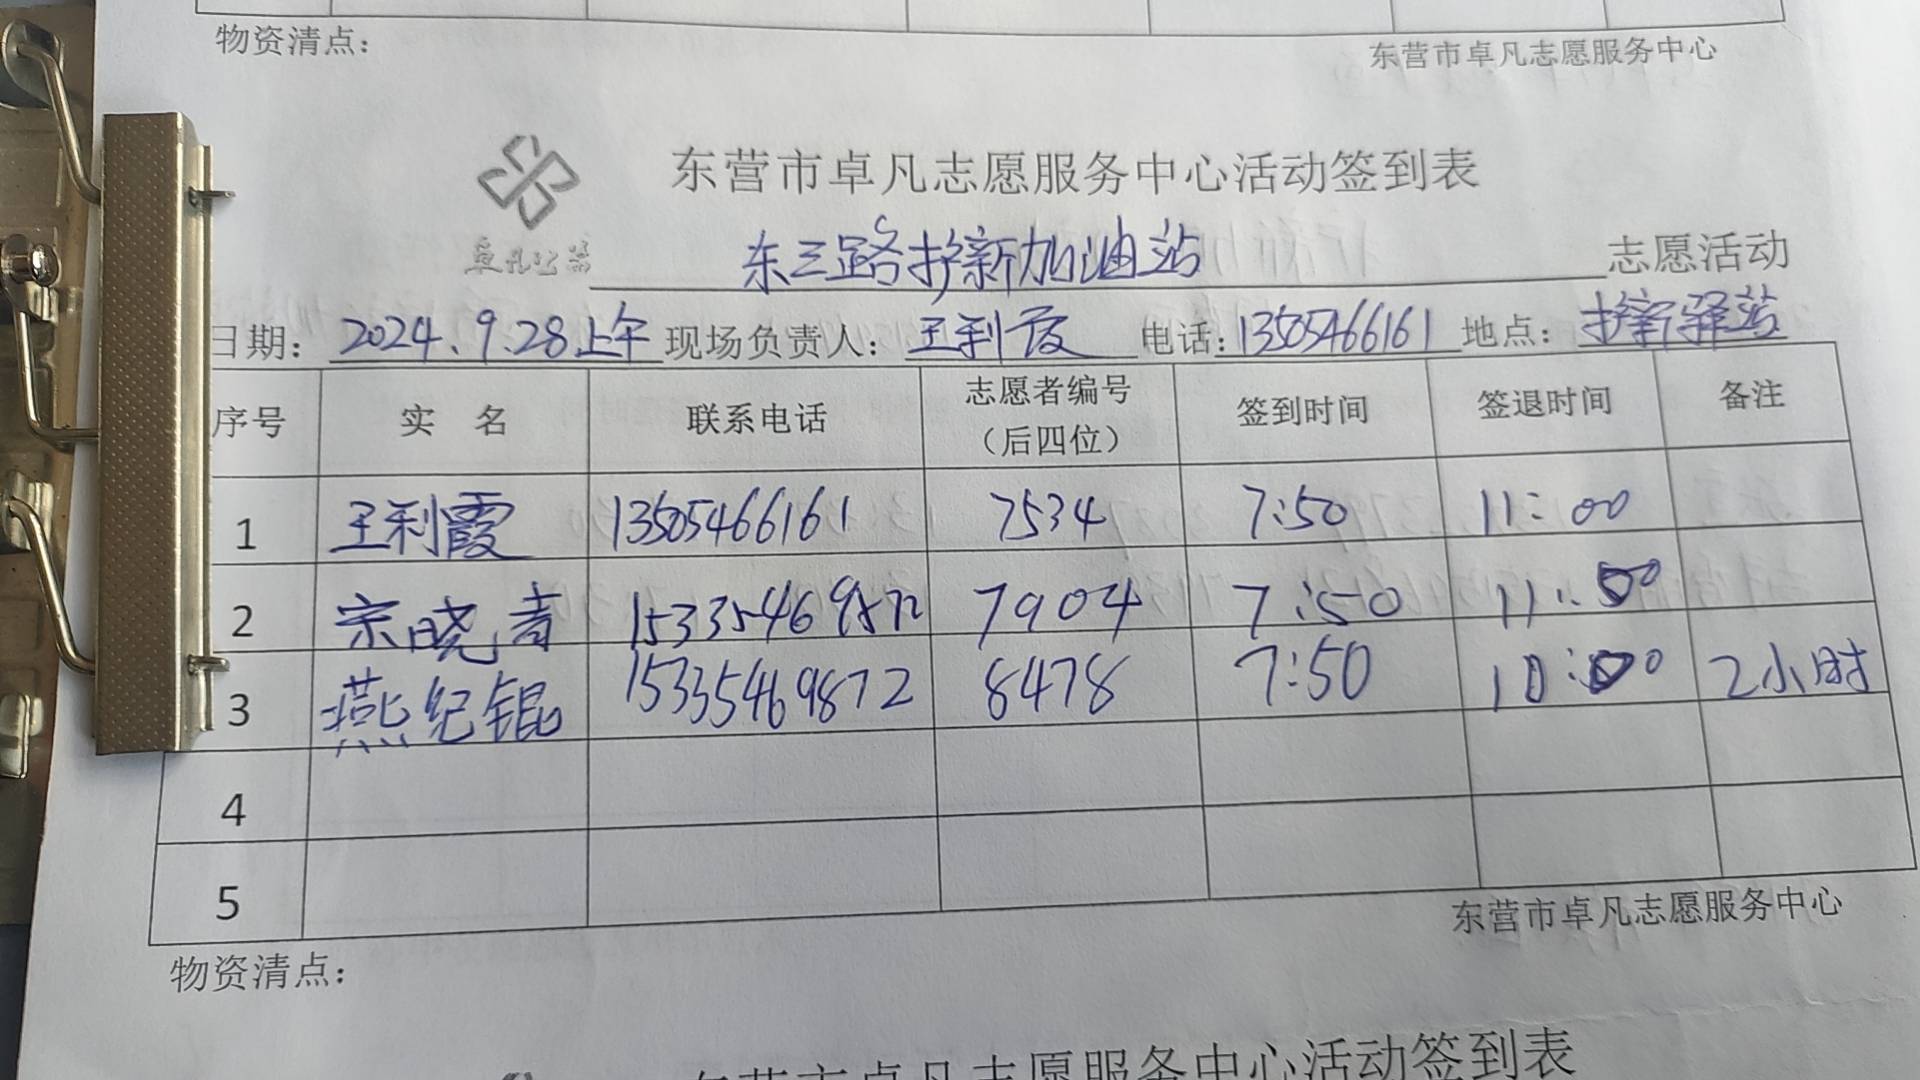 物资清点：
东营市卓凡志愿服务中心
东营市卓凡志愿服务中心活动签到表
卓凡公益
东三路护新加油站 志愿活动
日期： 2024.9.28上午 现场负责人： 王利霞 电话： 13505466161 地点： 护新驿站
序号 实 名 联系电话 志愿者编号（后四位） 签到时间 签退时间 备注
1 王利霞 13505466161 7534 7:50 11:00
2 宗晓青 15335469872 7904 7:50 11:00
3 燕纪锟 15335469872 8478 7:50 10:00 2小时
4
5
东营市卓凡志愿服务中心
物资清点：
东营市卓凡志愿服务中心活动签到表